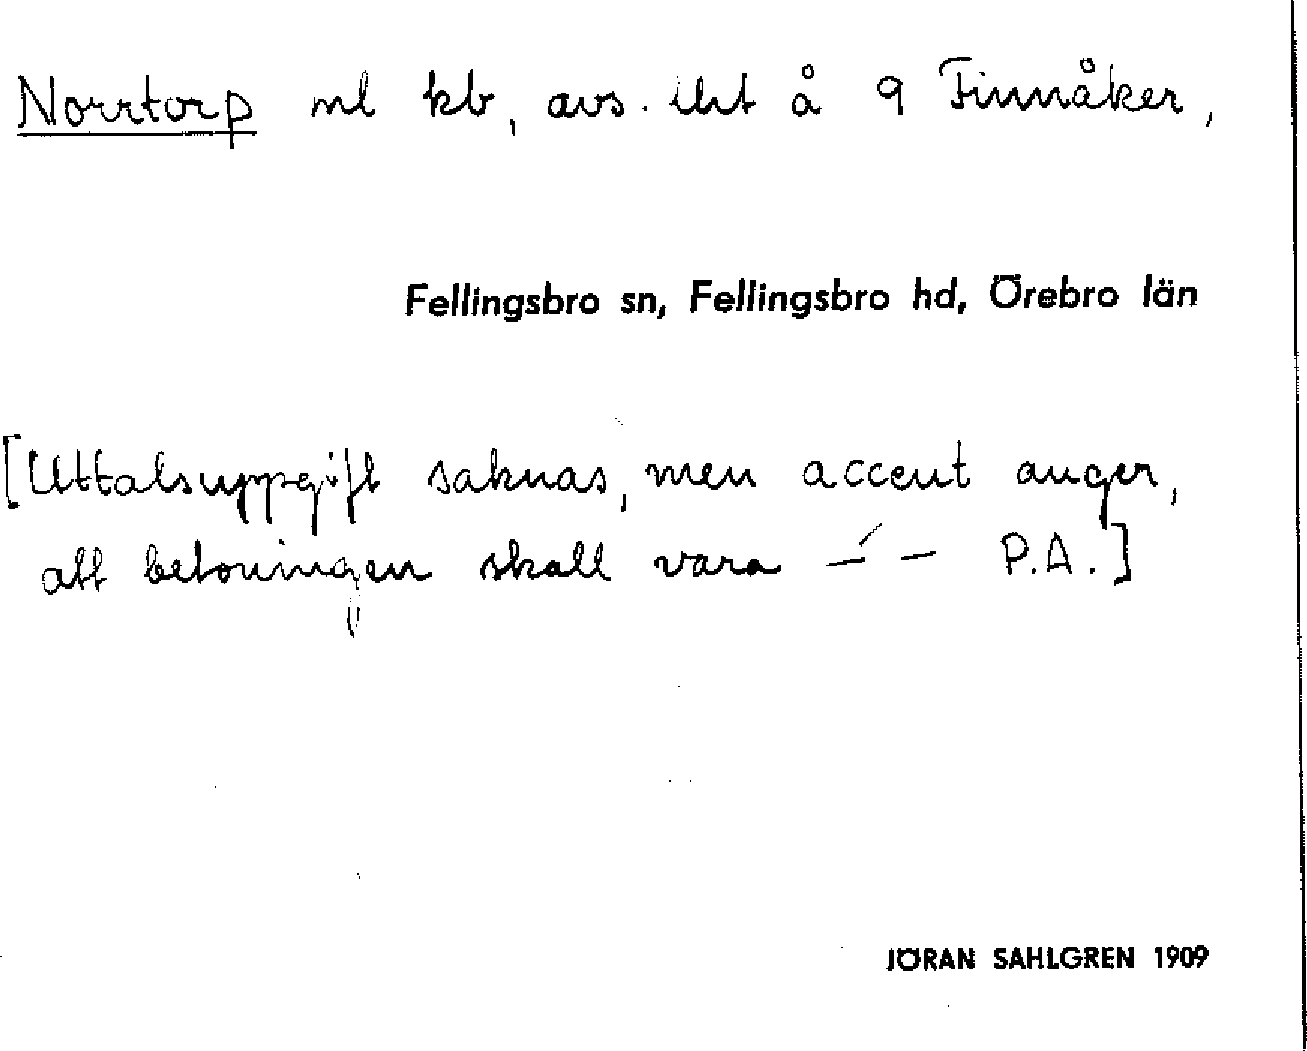 Norrtorp ml kb, avs. å 9 Finnåker,
Fellingsbro sn, Fellingsbro hd, Örebro län
[Uttalsuppgift saknas, men accent anger,
att betoningen skall vara –´ – P.A.]
JÖRAN SAHLGREN 1909